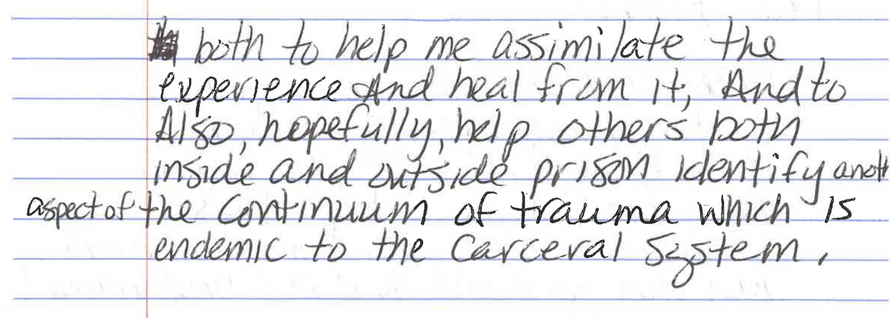 both to help me assimilate the
experience And heal from it, And to
Also, hopefully, help others both
inside and outside prison identify
aspect of the continuum of trauma which is
endemic to the Carceral System.